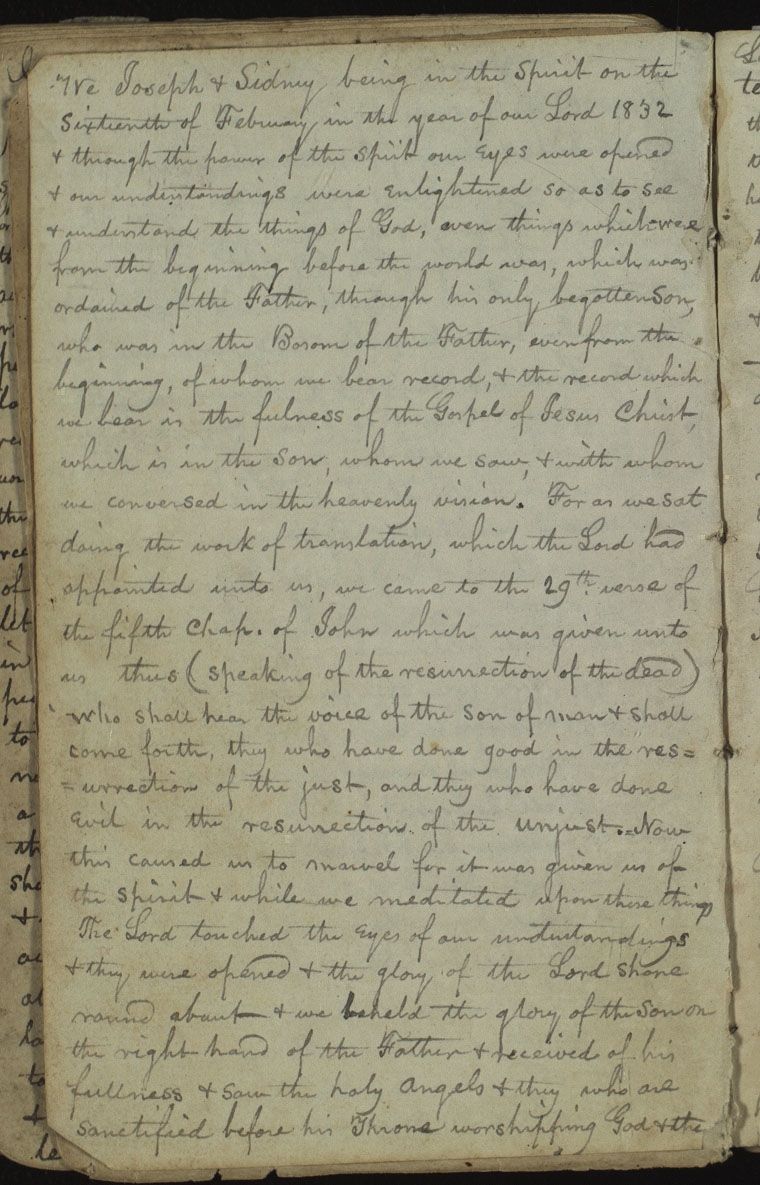 We Joseph & Sidney being in the Spirit on the
Sixteenth of February in the year of our Lord 1832
& through the power of the Spirit our Eyes were opened
& our understandings were Enlightened so as to see
& understand the things of God, even things which were
from the beginning before the world was, which was
ordained of the Father, through his only begotten Son,
who was in the Bosom of the Father, even from the
beginning, of whom we bear record, & the record which
we bear is the fulness of the Gospel of Jesus Christ,
which is in the Son, whom we saw, & with whom
we conversed in the heavenly vision. For as we sat
doing the work of translation, which the Lord had
appointed unto us, we came to the 29th verse of
the fifth Chap. of John which was given unto
us thus (speaking of the resurrection of the dead)
who shall hear the voice of the Son of man & shall
come forth, they who have done good in the res=
=urrection of the just, and they who have done
Evil in the resurrection of the unjust.=Now
this caused us to marvel for it was given us of
the spirit & while we meditated upon these things
The Lord touched the Eyes of our understandings
& they were opened & the glory of the Lord shone
round about & we beheld the glory of the Son on
the right hand of the Father & received of his
fullness & saw the holy Angels & they who are
sanctified before his Throne worshipping God & the